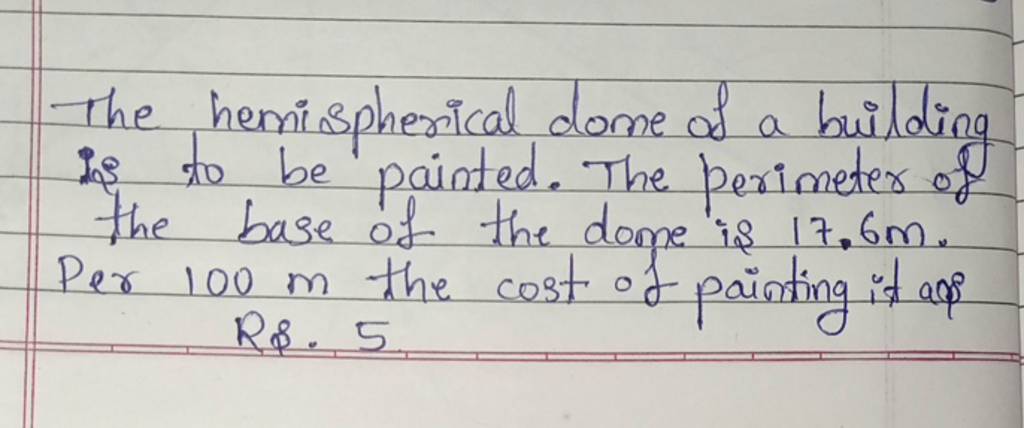 The hemispherical dome of a building
is to be painted. The perimeter of
the base of the dome is 17.6m.
Per 100 m the cost of painting it
Rs. 5